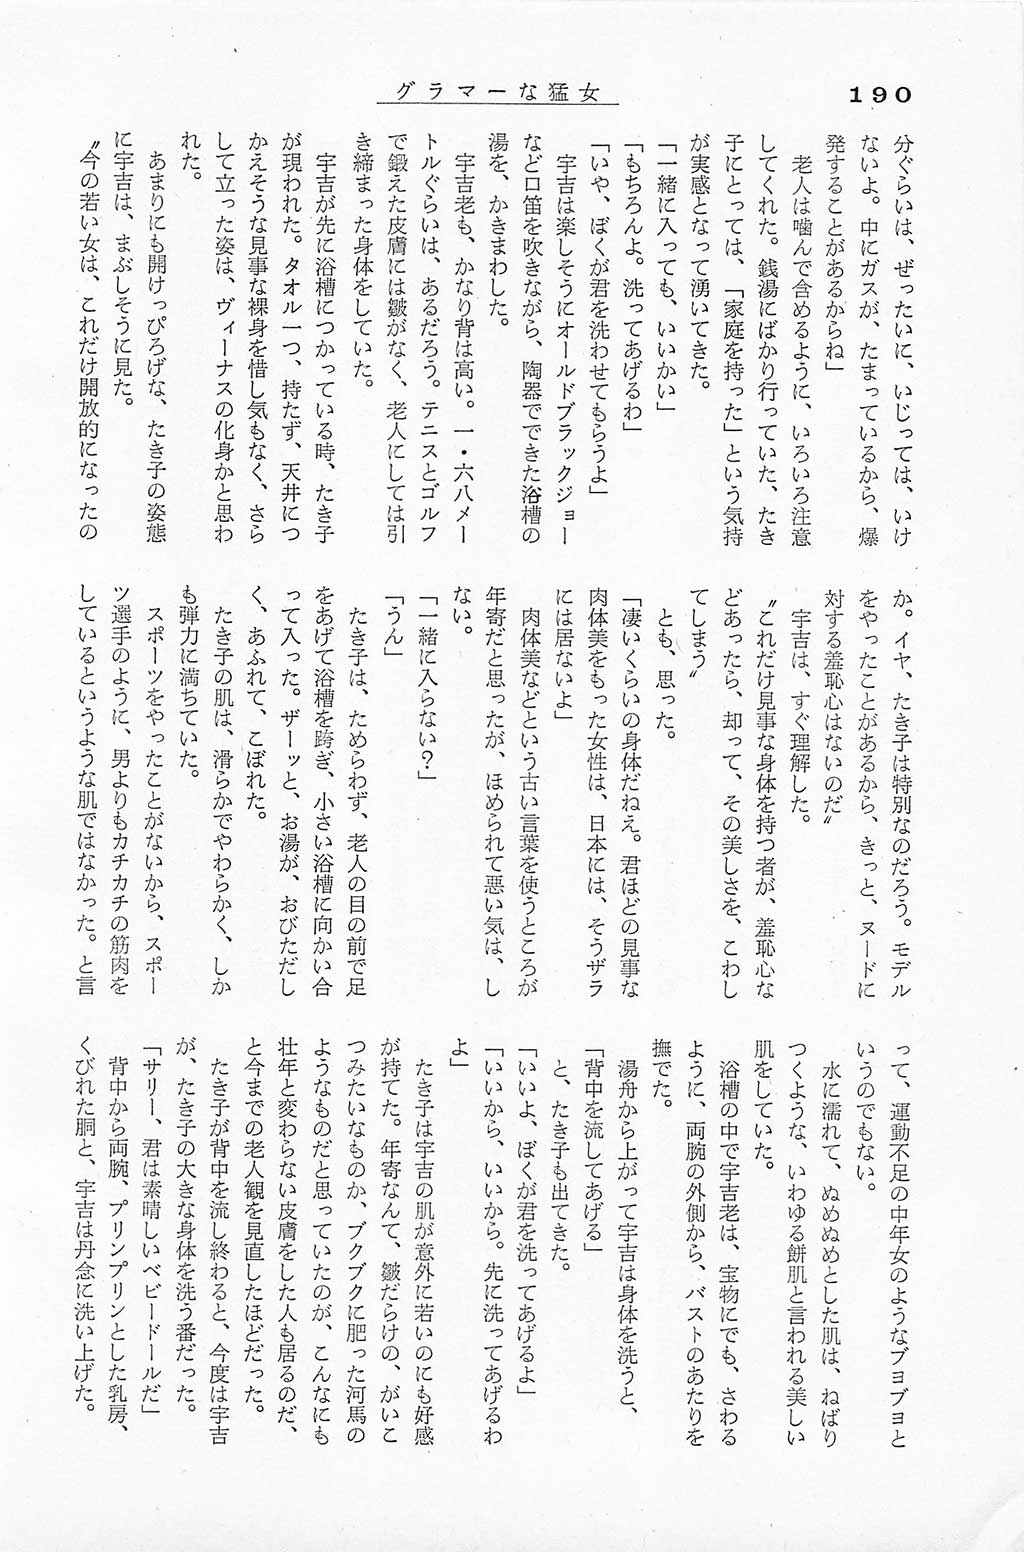 190
グラマーな猛女
分ぐらいは、ぜったいに、いじっては、いけ
ないよ。中にガスが、たまっているから、爆
発することがあるからね」
　老人は噛んで含めるように、いろいろ注意
してくれた。銭湯にばかり行っていた、たき
子にとっては、「家庭を持った」という気持
が実感となって湧いてきた。
「一緒に入っても、いいかい」
「もちろんよ。洗ってあげるわ」
「いや、ぼくが君を洗わせてもらうよ」
　宇吉は楽しそうにオールドブラックジョー
など口笛を吹きながら、陶器でできた浴槽の
湯を、かきまわした。
　宇吉老も、かなり背は高い。一・六八メー
トルぐらいは、あるだろう。テニスとゴルフ
で鍛えた皮膚には皺がなく、老人にしては引
き締まった身体をしていた。
　宇吉が先に浴槽につかっている時、たき子
が現われた。タオル一つ、持たず、天井につ
かえそうな見事な裸身を惜し気もなく、さら
して立った姿は、ヴィーナスの化身かと思わ
れた。
　あまりにも開けっぴろげな、たき子の姿態
に宇吉は、まぶしそうに見た。
〝今の若い女は、これだけ開放的になったの
か。イヤ、たき子は特別なのだろう。モデル
をやったことがあるから、きっと、ヌードに
対する羞恥心はないのだ〟
　宇吉は、すぐ理解した。
〝これだけ見事な身体を持つ者が、羞恥心な
どあったら、却って、その美しさを、こわし
てしまう〟
　とも、思った。
「凄いくらいの身体だねえ。君ほどの見事な
肉体美をもった女性は、日本には、そうザラ
には居ないよ」
　肉体美などという古い言葉を使うところが
年寄だと思ったが、ほめられて悪い気は、し
ない。
「一緒に入らない？」
「うん」
　たき子は、ためらわず、老人の目の前で足
をあげて浴槽を跨ぎ、小さい浴槽に向かい合
って入った。ザーッと、お湯が、おびただし
く、あふれて、こぼれた。
　たき子の肌は、滑らかでやわらかく、しか
も弾力に満ちていた。
　スポーツをやったことがないから、スポー
ツ選手のように、男よりもカチカチの筋肉を
しているというような肌ではなかった。と言
って、運動不足の中年女のようなブヨブヨと
いうのでもない。
　水に濡れて、ぬめぬめとした肌は、ねばり
つくような、いわゆる餅肌と言われる美しい
肌をしていた。
　浴槽の中で宇吉老は、宝物にでも、さわる
ように、両腕の外側から、バストのあたりを
撫でた。
　湯舟から上がって宇吉は身体を洗うと、
「背中を流してあげる」
　と、たき子も出てきた。
「いいよ、ぼくが君を洗ってあげるよ」
「いいから、いいから。先に洗ってあげるわ
よ」
　たき子は宇吉の肌が意外に若いのにも好感
が持てた。年寄なんて、皺だらけの、がいこ
つみたいなものか、ブクブクに肥った河馬の
ようなものだと思っていたのが、こんなにも
壮年と変わらない皮膚をした人も居るのだ、
と今までの老人観を見直したほどだった。
　たき子が背中を流し終わると、今度は宇吉
が、たき子の大きな身体を洗う番だった。
「サリー、君は素晴しいベビードールだ」
　背中から両腕、プリンプリンとした乳房、
くびれた胴と、宇吉は丹念に洗い上げた。